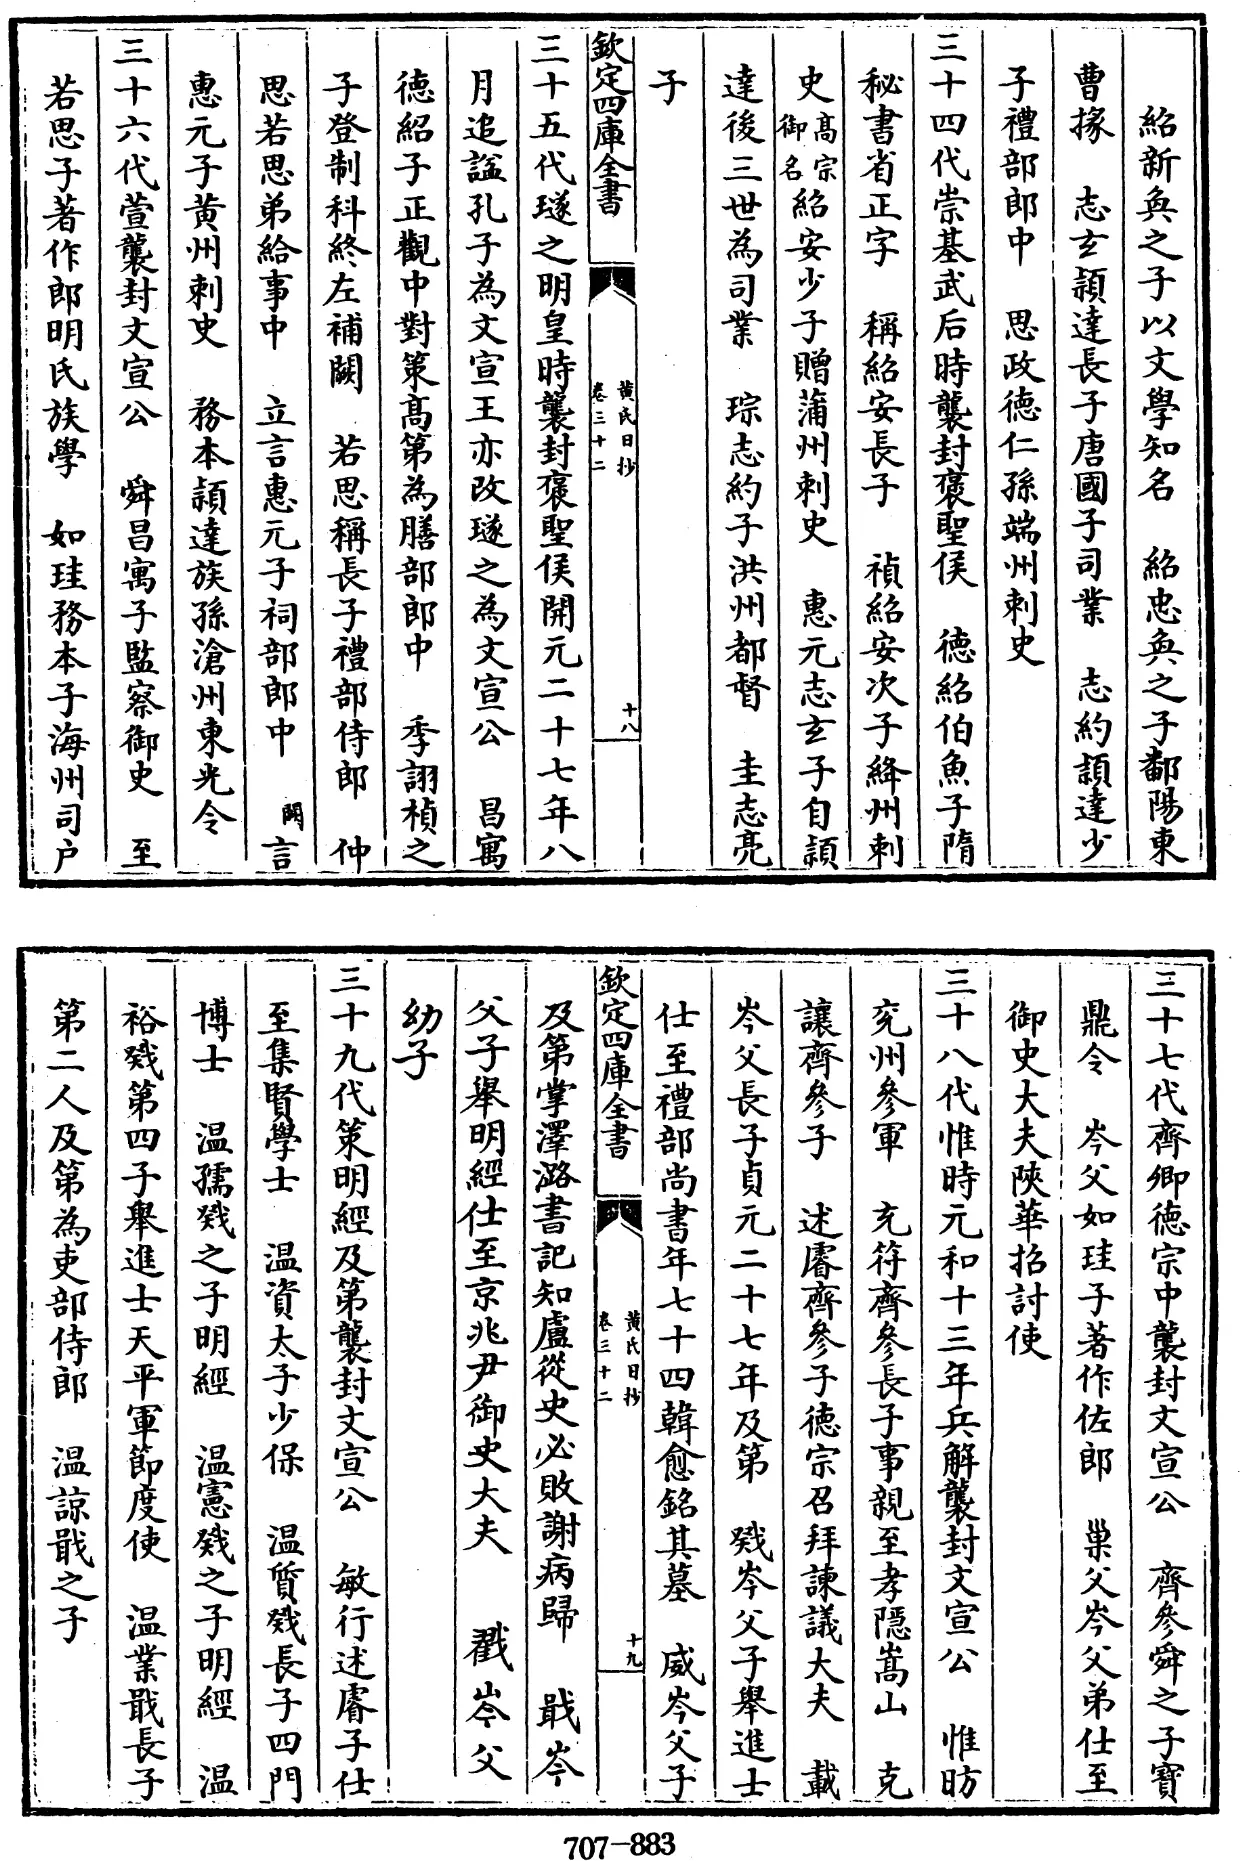 紹新奐之子以文學知名　紹忠奐之子鄱陽東
曹掾　志玄頴達長子唐國子司業　志約頴達少
子禮部郎中　思政德仁孫端州刺史
三十四代崇基武后時襲封襃聖侯　德紹伯魚子隋
秘書省正字　稱紹安長子　禎紹安次子絳州刺
史高宗御名紹安少子贈蒲州刺史　惠元志玄子自頴
達後三世為司業　琮志約子洪州都督　圭志亮
子
欽定四庫全書
黃氏日抄
卷三十二
十八
三十五代璲之明皇時襲封襃聖侯開元二十七年八
月追諡孔子為文宣王亦改璲之為文宣公　昌寓
德紹子正觀中對策髙第為膳部郎中　季詡楨之
子登制科終左補闕　若思稱長子禮部侍郎　仲
思若思弟給事中　立言惠元子祠部郎中　闕言
惠元子黃州刺史　務本頴達族孫滄州東光令
三十六代萱襲封文宣公　舜昌寓子監察御史　至
若思子著作郎明氏族學　如珪務本子海州司户
三十七代齊卿德宗中襲封文宣公　齊參舜之子寶
鼎令　岑父如珪子著作佐郎　巢父岑父弟仕至
御史大夫陝華招討使
三十八代惟時元和十三年兵解襲封文宣公　惟昉
兖州參軍　充符齊參長子事親至孝隱嵩山　克
讓齊參子　述睿齊參子德宗召拜諫議大夫　載
岑父長子貞元二十七年及第　戣岑父子舉進士
仕至禮部尚書年七十四韓愈銘其墓　威岑父子
欽定四庫全書
黃氏日抄
卷三十二
十九
及第掌澤潞書記知盧從史必敗謝病歸　戢岑
父子舉明經仕至京兆尹御史大夫　戳岑父
幼子
三十九代策明經及第襲封文宣公　敏行述睿子仕
至集賢學士　温資太子少保　温質戣長子四門
博士　温孺戣之子明經　温憲戣之子明經　温
裕戣第四子舉進士天平軍節度使　温業戢長子
第二人及第為吏部侍郎　温諒戢之子
707-883